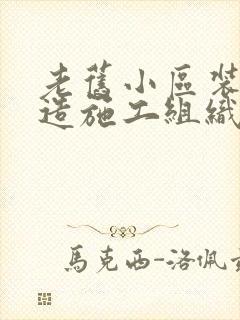 老舊小區裝
造施工組織
馬克西-洛佩